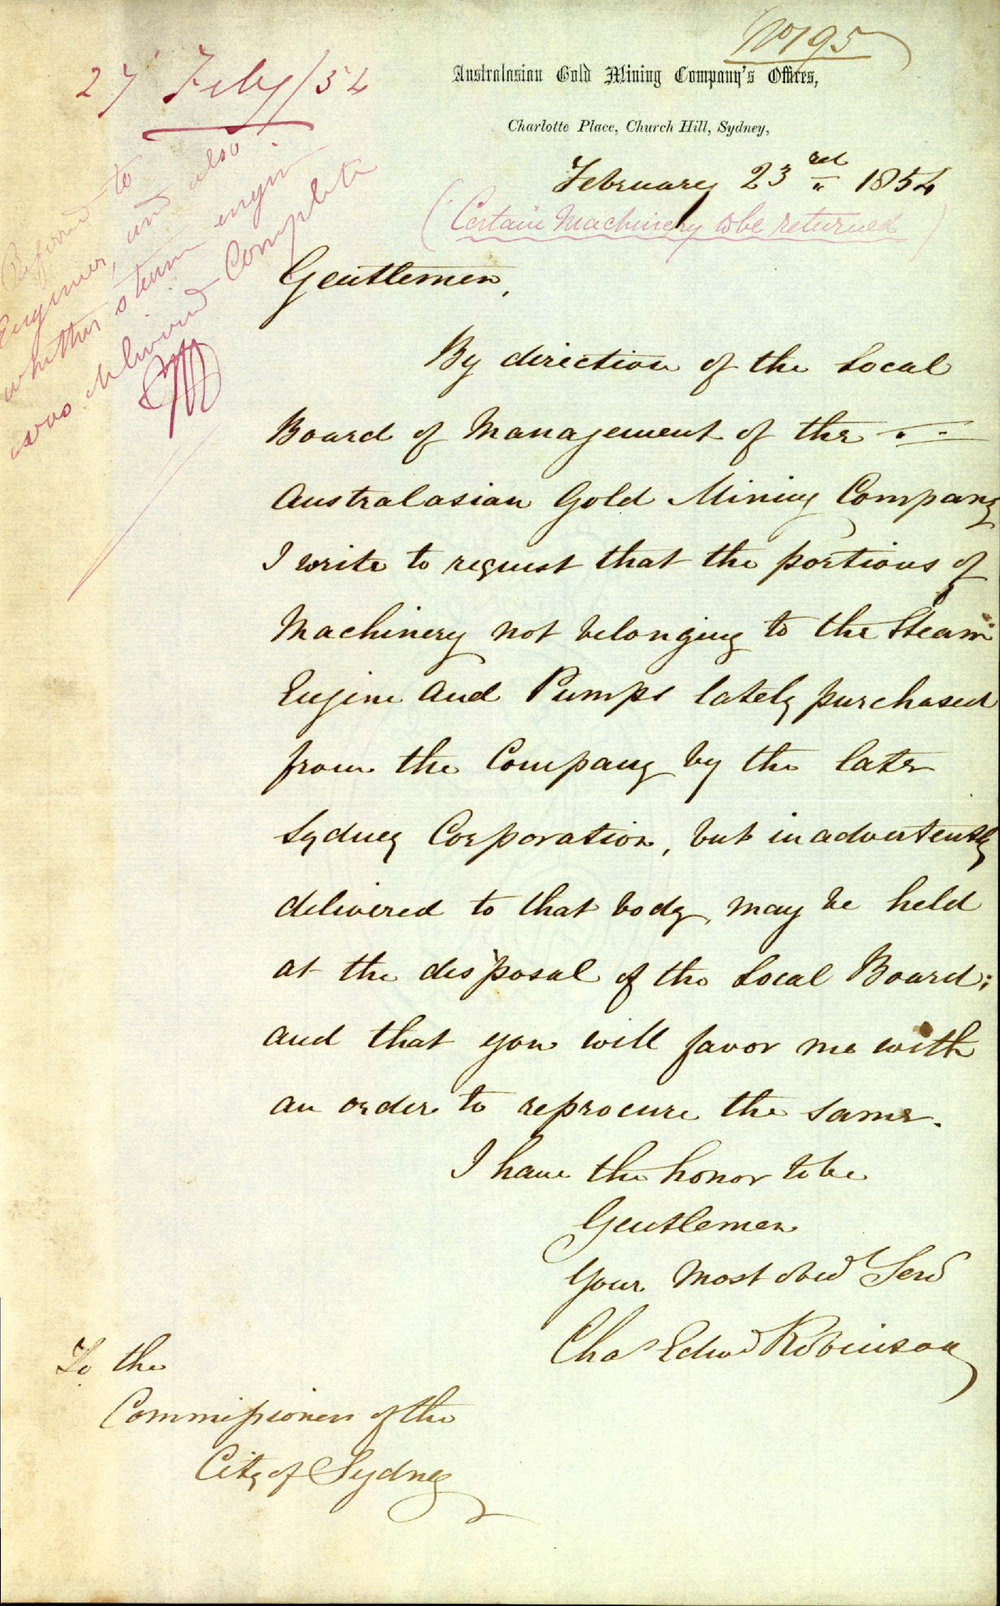 No 195
Australasian Gold Mining Company's Offices,
Charlotte Place, Church Hill, Sydney,
February 23rd 1854
(Certain Machinery to be returned)
27 Feby/54
Referred to
Engineer, and also
whether steam engine
was delivered Complete
Gentlemen,
By direction of the Local
Board of Management of the
Australasian Gold Mining Company
I write to request that the portions of
Machinery not belonging to the Steam
Engine and Pumps lately purchased
from the Company by the late
Sydney Corporation, but inadvertently
delivered to that body, may be held
at the disposal of the Local Board;
and that you will favor me with
an order to reprocure the same.
I have the honor to be
Gentlemen
Your most obed Serv
Chas Edwd Robinson
To the
Commissioners of the
City of Sydney